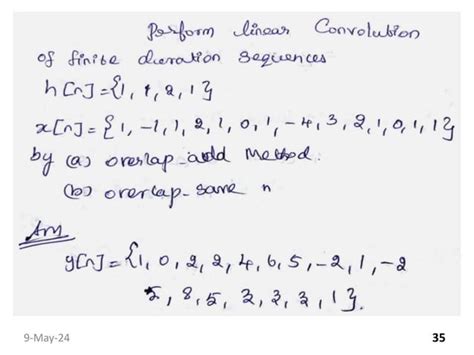 Perform linear Convolution
of finite duration sequences
h[n]={1, 1, 2, 1}
x[n]={1, -1, 1, 2, 1, 0, 1, -4, 3, 2, 1, 0, 1, 1}
by (a) overlap-add Method.
(b) overlap-save n
Ans
y[n]={1, 0, 2, 2, 4, 6, 5, -2, 1, -2
5, 8, 5, 3, 3, 3, 1}.
9-May-24
35